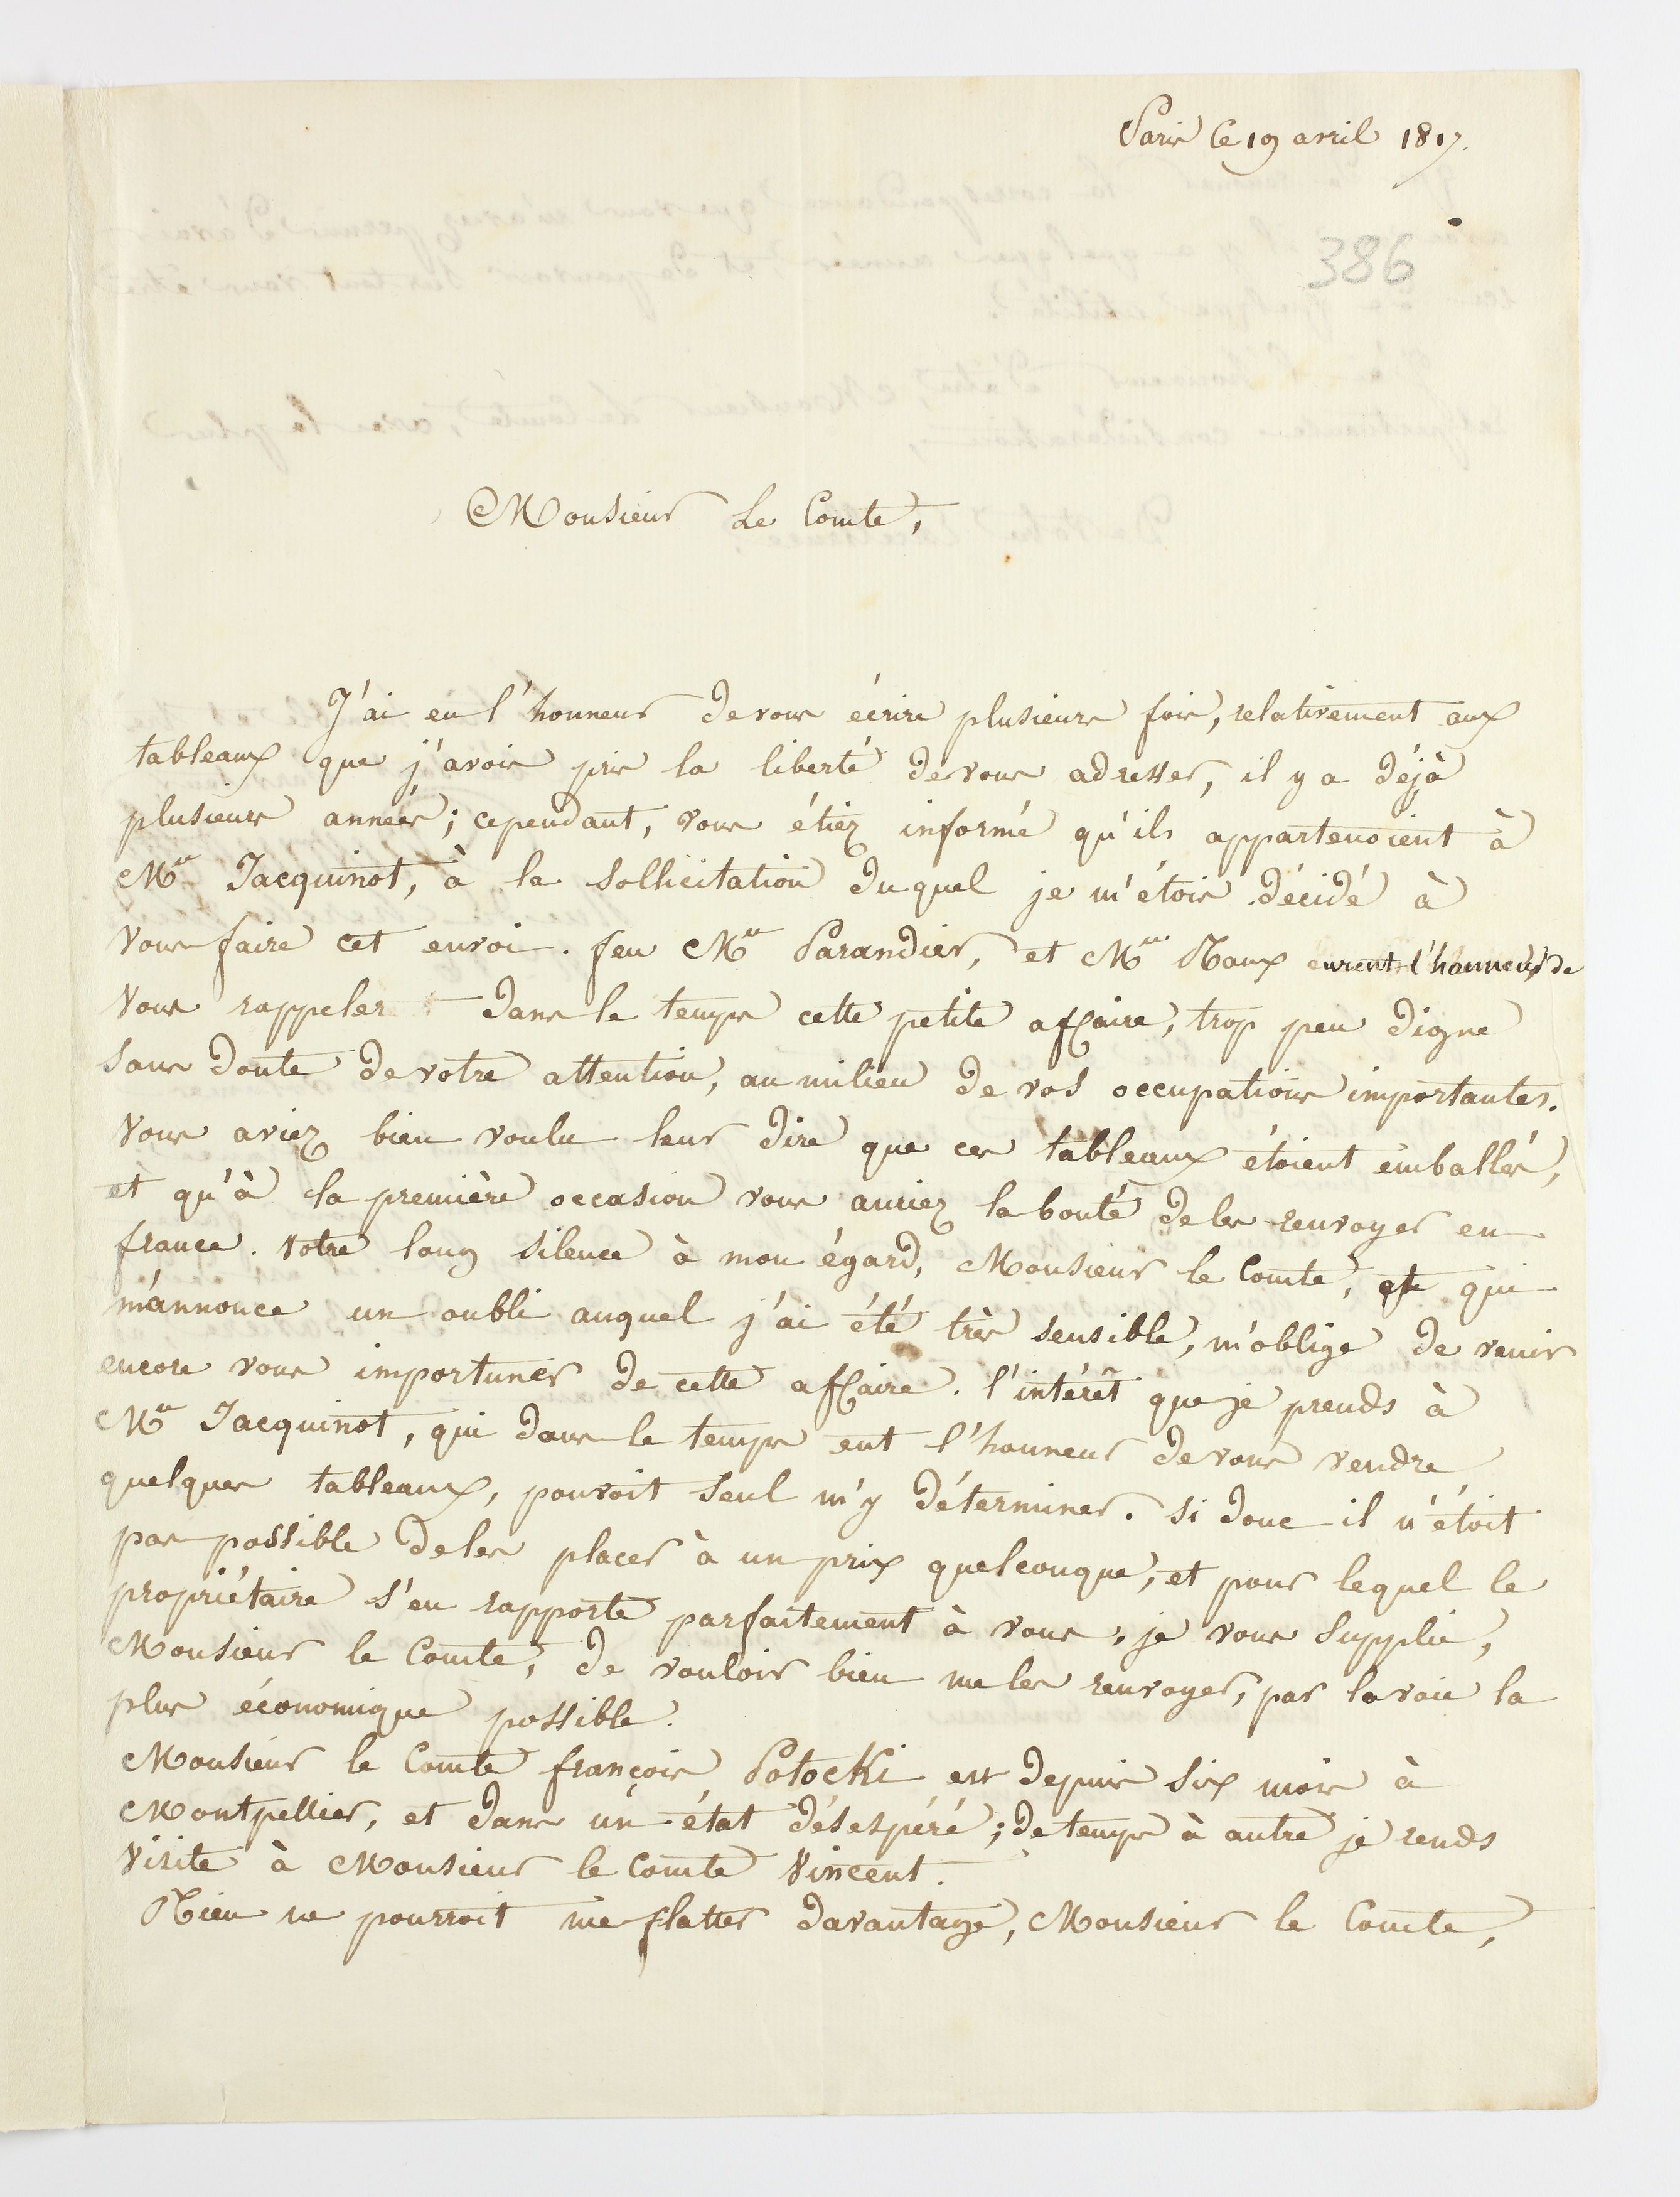 Paris Ce 19 avril 1817.
386
Monsieur Le Comte,
J'ai eu l'honneur de vous écrire plusieurs fois, relativement aux
tableaux que j'avois pris la liberté de vous adresser, il y a déjà
plusieurs années; cependant, vous étiez informé qu'ils appartenoient à
Mr Jacquinot, à la sollicitation duquel je m'étois décidé à
vous faire cet envoi. feu Mr Parandier, et Mr Roux eurent l'honneur de
vous rappeler dans le temps cette petite affaire, trop peu digne
sans doute de votre attention, au milieu de vos occupations importantes.
Vous aviez bien voulu leur dire que ces tableaux étoient emballés,
et qu'à la première occasion vous auriez la bonté de les renvoyer en
france. Votre long silence à mon égard, Monsieur le Comte, et qui
m'annonce un oubli auquel j'ai été très sensible, m'oblige de venir
encore vous importuner de cette affaire. l'intérêt que je prends à
Mr Jacquinot, qui dans le temps eut l'honneur de vous vendre
quelques tableaux, pouvoit seul m'y déterminer. si donc il n'étoit
pas possible de les placer à un prix quelconque, et pour lequel le
propriétaire s'en rapporte parfaitement à vous, je vous supplie,
Monsieur le Comte, de vouloir bien me les renvoyer, par la voie la
plus économique possible.
Monsieur le Comte françois Potocki est depuis six mois à
Montpellier, et dans un état désespéré; de temps à autre je rends
visite à Monsieur le Comte Vincent.
Rien ne pourroit me flatter davantage, Monsieur le Comte,